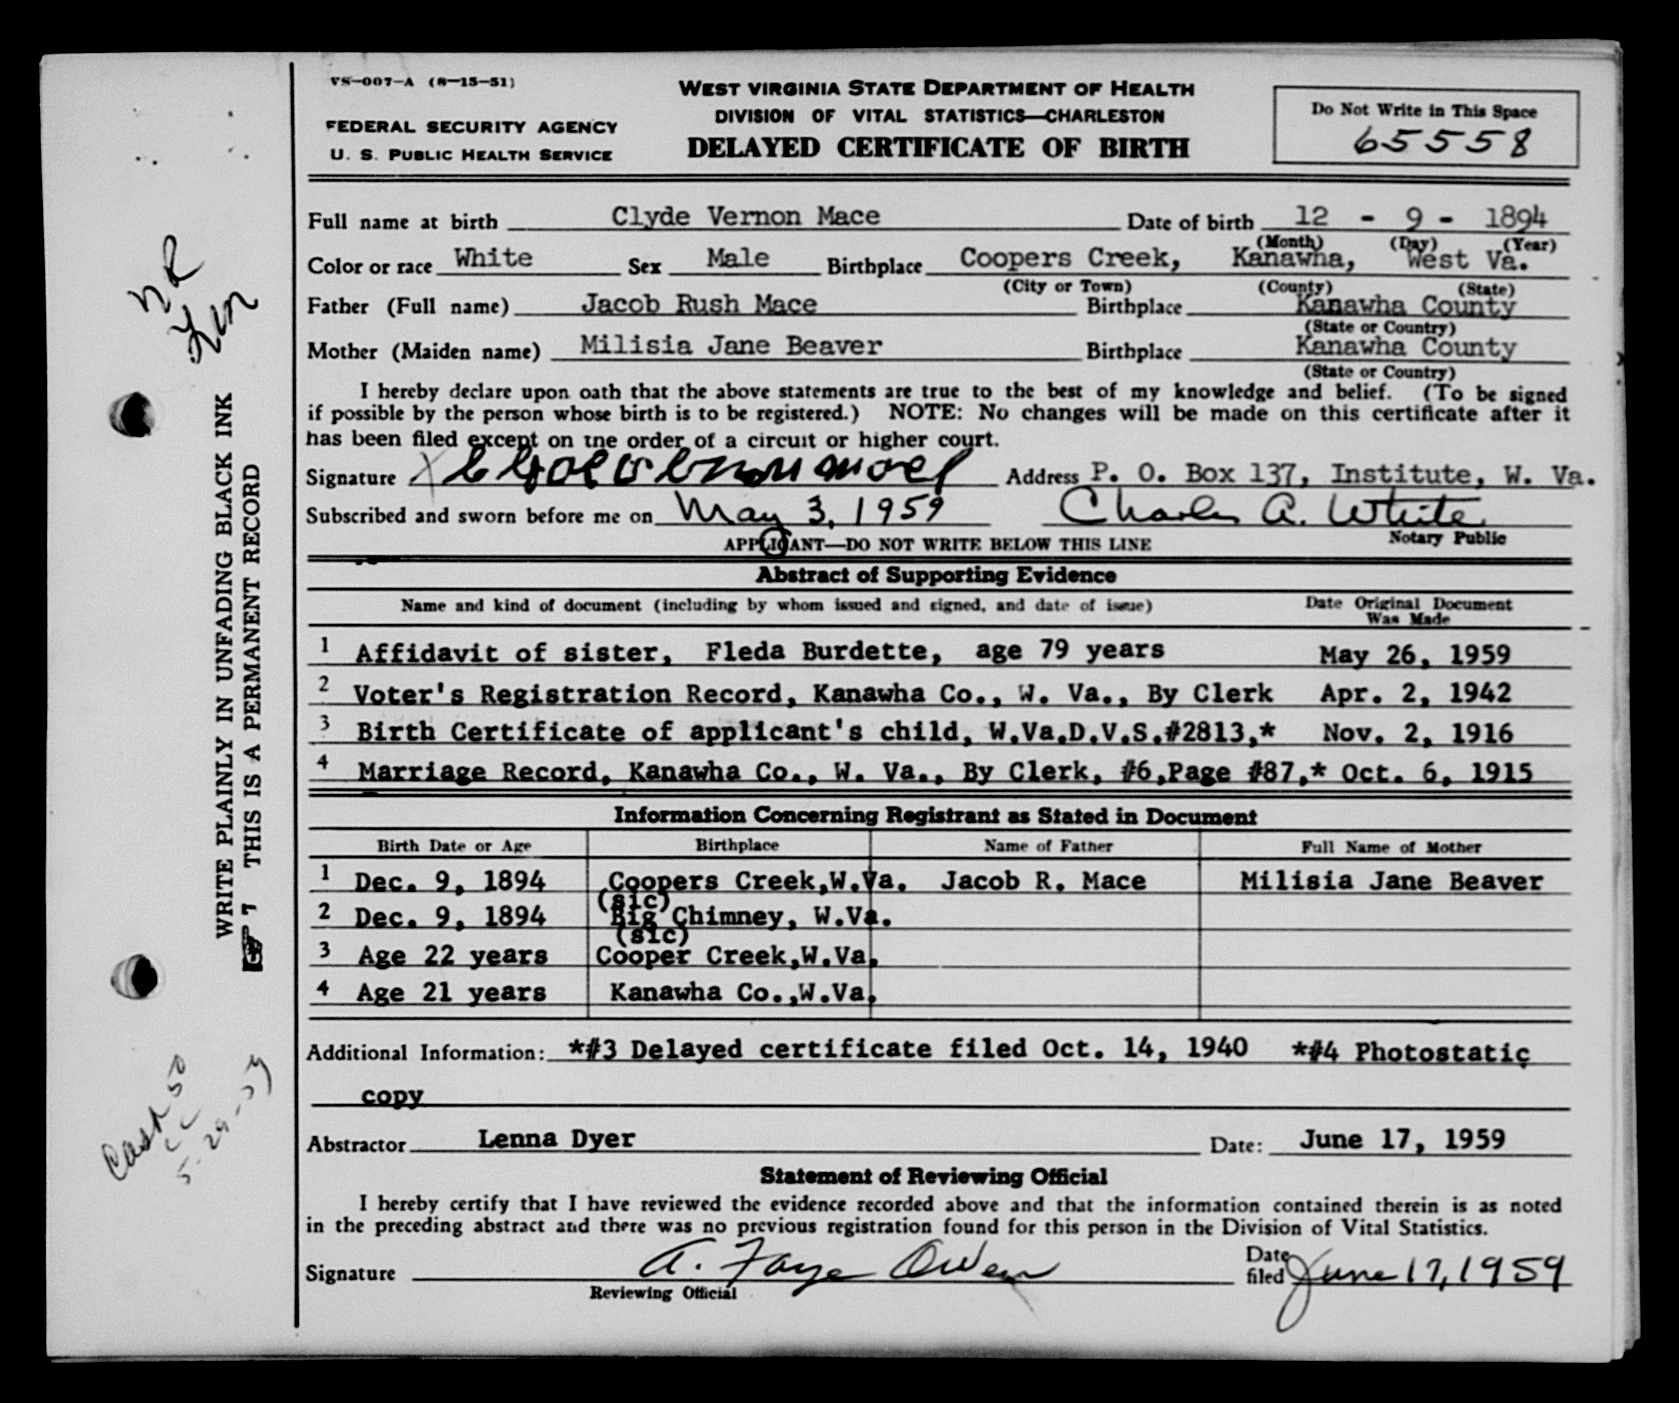 VS-007-A (8-15-51)
FEDERAL SECURITY AGENCY
U. S. PUBLIC HEALTH SERVICE
WEST VIRGINIA STATE DEPARTMENT OF HEALTH
DIVISION OF VITAL STATISTICS—CHARLESTON
DELAYED CERTIFICATE OF BIRTH
Do Not Write in This Space
65558
Full name at birth Clyde Vernon Mace Date of birth 12 - 9 - 1894
(Month) (Day) (Year)
Color or race White Sex Male Birthplace Coopers Creek, Kanawha, West Va.
(City or Town) (County) (State)
Father (Full name) Jacob Rush Mace Birthplace Kanawha County
(State or Country)
Mother (Maiden name) Milisia Jane Beaver Birthplace Kanawha County
(State or Country)
I hereby declare upon oath that the above statements are true to the best of my knowledge and belief. (To be signed
if possible by the person whose birth is to be registered.) NOTE: No changes will be made on this certificate after it
has been filed except on the order of a circuit or higher court.
Signature X Address P. O. Box 137, Institute, W. Va.
Subscribed and sworn before me on May 3, 1959 Charles A. White
Notary Public
APPLICANT—DO NOT WRITE BELOW THIS LINE
Abstract of Supporting Evidence
Name and kind of document (including by whom issued and signed, and date of issue) Date Original Document
Was Made
1 Affidavit of sister, Fleda Burdette, age 79 years May 26, 1959
2 Voter's Registration Record, Kanawha Co., W. Va., By Clerk Apr. 2, 1942
3 Birth Certificate of applicant's child, W.Va.D.V.S.#2813,* Nov. 2, 1916
4 Marriage Record, Kanawha Co., W. Va., By Clerk, #6,Page #87,* Oct. 6, 1915
Information Concerning Registrant as Stated in Document
Birth Date or Age Birthplace Name of Father Full Name of Mother
1 Dec. 9, 1894 Coopers Creek,W.Va. Jacob R. Mace Milisia Jane Beaver
(sic)
2 Dec. 9, 1894 Big Chimney, W.Va.
(sic)
3 Age 22 years Cooper Creek,W.Va.
4 Age 21 years Kanawha Co.,W.Va.
Additional Information: *#3 Delayed certificate filed Oct. 14, 1940 *#4 Photostatic
copy
Abstractor Lenna Dyer Date: June 17, 1959
Statement of Reviewing Official
I hereby certify that I have reviewed the evidence recorded above and that the information contained therein is as noted
in the preceding abstract and there was no previous registration found for this person in the Division of Vital Statistics.
Signature A. Faye Owen Date
filed June 17, 1959
Reviewing Official
WRITE PLAINLY IN UNFADING BLACK INK
THIS IS A PERMANENT RECORD
Cash 50